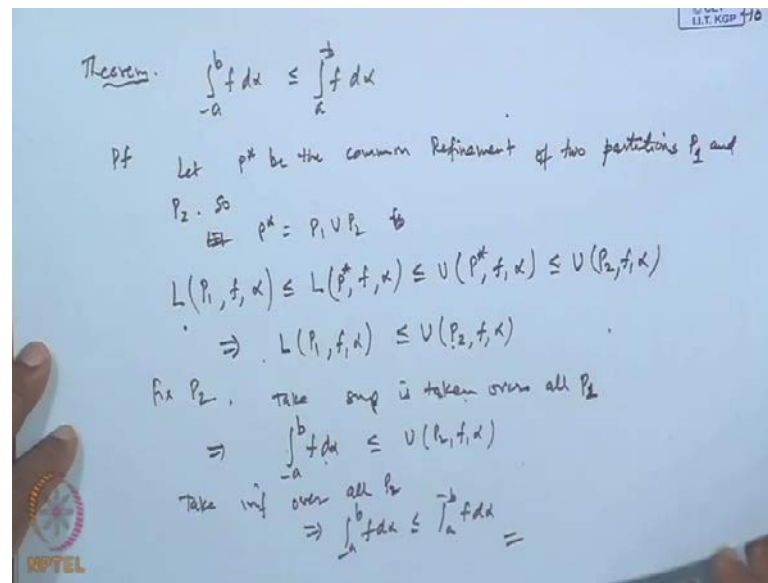 I.I.T. KGP
Theorem. ∫_{-a}^{b} f dα ≤ ∫_{a}^{-b} f dα
Pf Let P* be the common Refinement of two partitions P1 and
P2. So
P* = P1 ∪ P2
L(P1, f, α) ≤ L(P*, f, α) ≤ U(P*, f, α) ≤ U(P2, f, α)
⇒ L(P1, f, α) ≤ U(P2, f, α)
Fix P2, Take sup is taken over all P1
⇒ ∫_{-a}^{b} f dα ≤ U(P2, f, α)
Take inf over all P2
⇒ ∫_{-a}^{b} f dα ≤ ∫_{a}^{-b} f dα
NPTEL